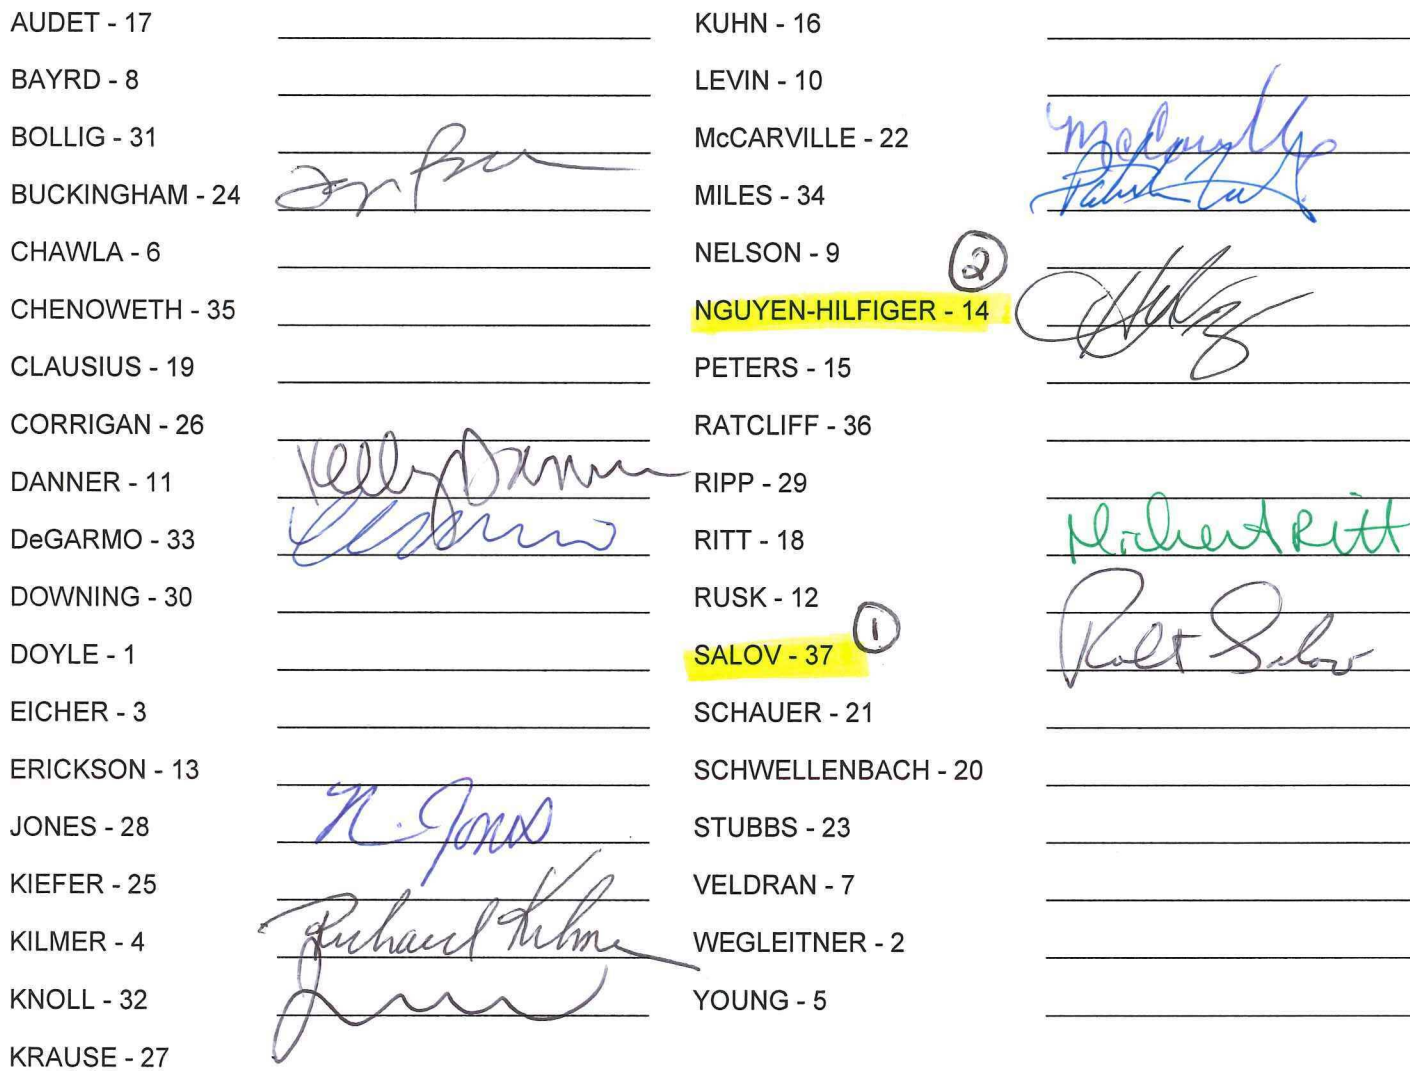 AUDET - 17
BAYRD - 8
BOLLIG - 31
BUCKINGHAM - 24
CHAWLA - 6
CHENOWETH - 35
CLAUSIUS - 19
CORRIGAN - 26
DANNER - 11 Kelly Danner
DeGARMO - 33
DOWNING - 30
DOYLE - 1
EICHER - 3
ERICKSON - 13
JONES - 28 N. Jones
KIEFER - 25
KILMER - 4 Richard Kilmer
KNOLL - 32
KRAUSE - 27
KUHN - 16
LEVIN - 10
McCARVILLE - 22 McCarville
MILES - 34
NELSON - 9
2
NGUYEN-HILFIGER - 14
PETERS - 15
RATCLIFF - 36
RIPP - 29
RITT - 18 Ritt
RUSK - 12
1
SALOV - 37 Salov
SCHAUER - 21
SCHWELLENBACH - 20
STUBBS - 23
VELDRAN - 7
WEGLEITNER - 2
YOUNG - 5